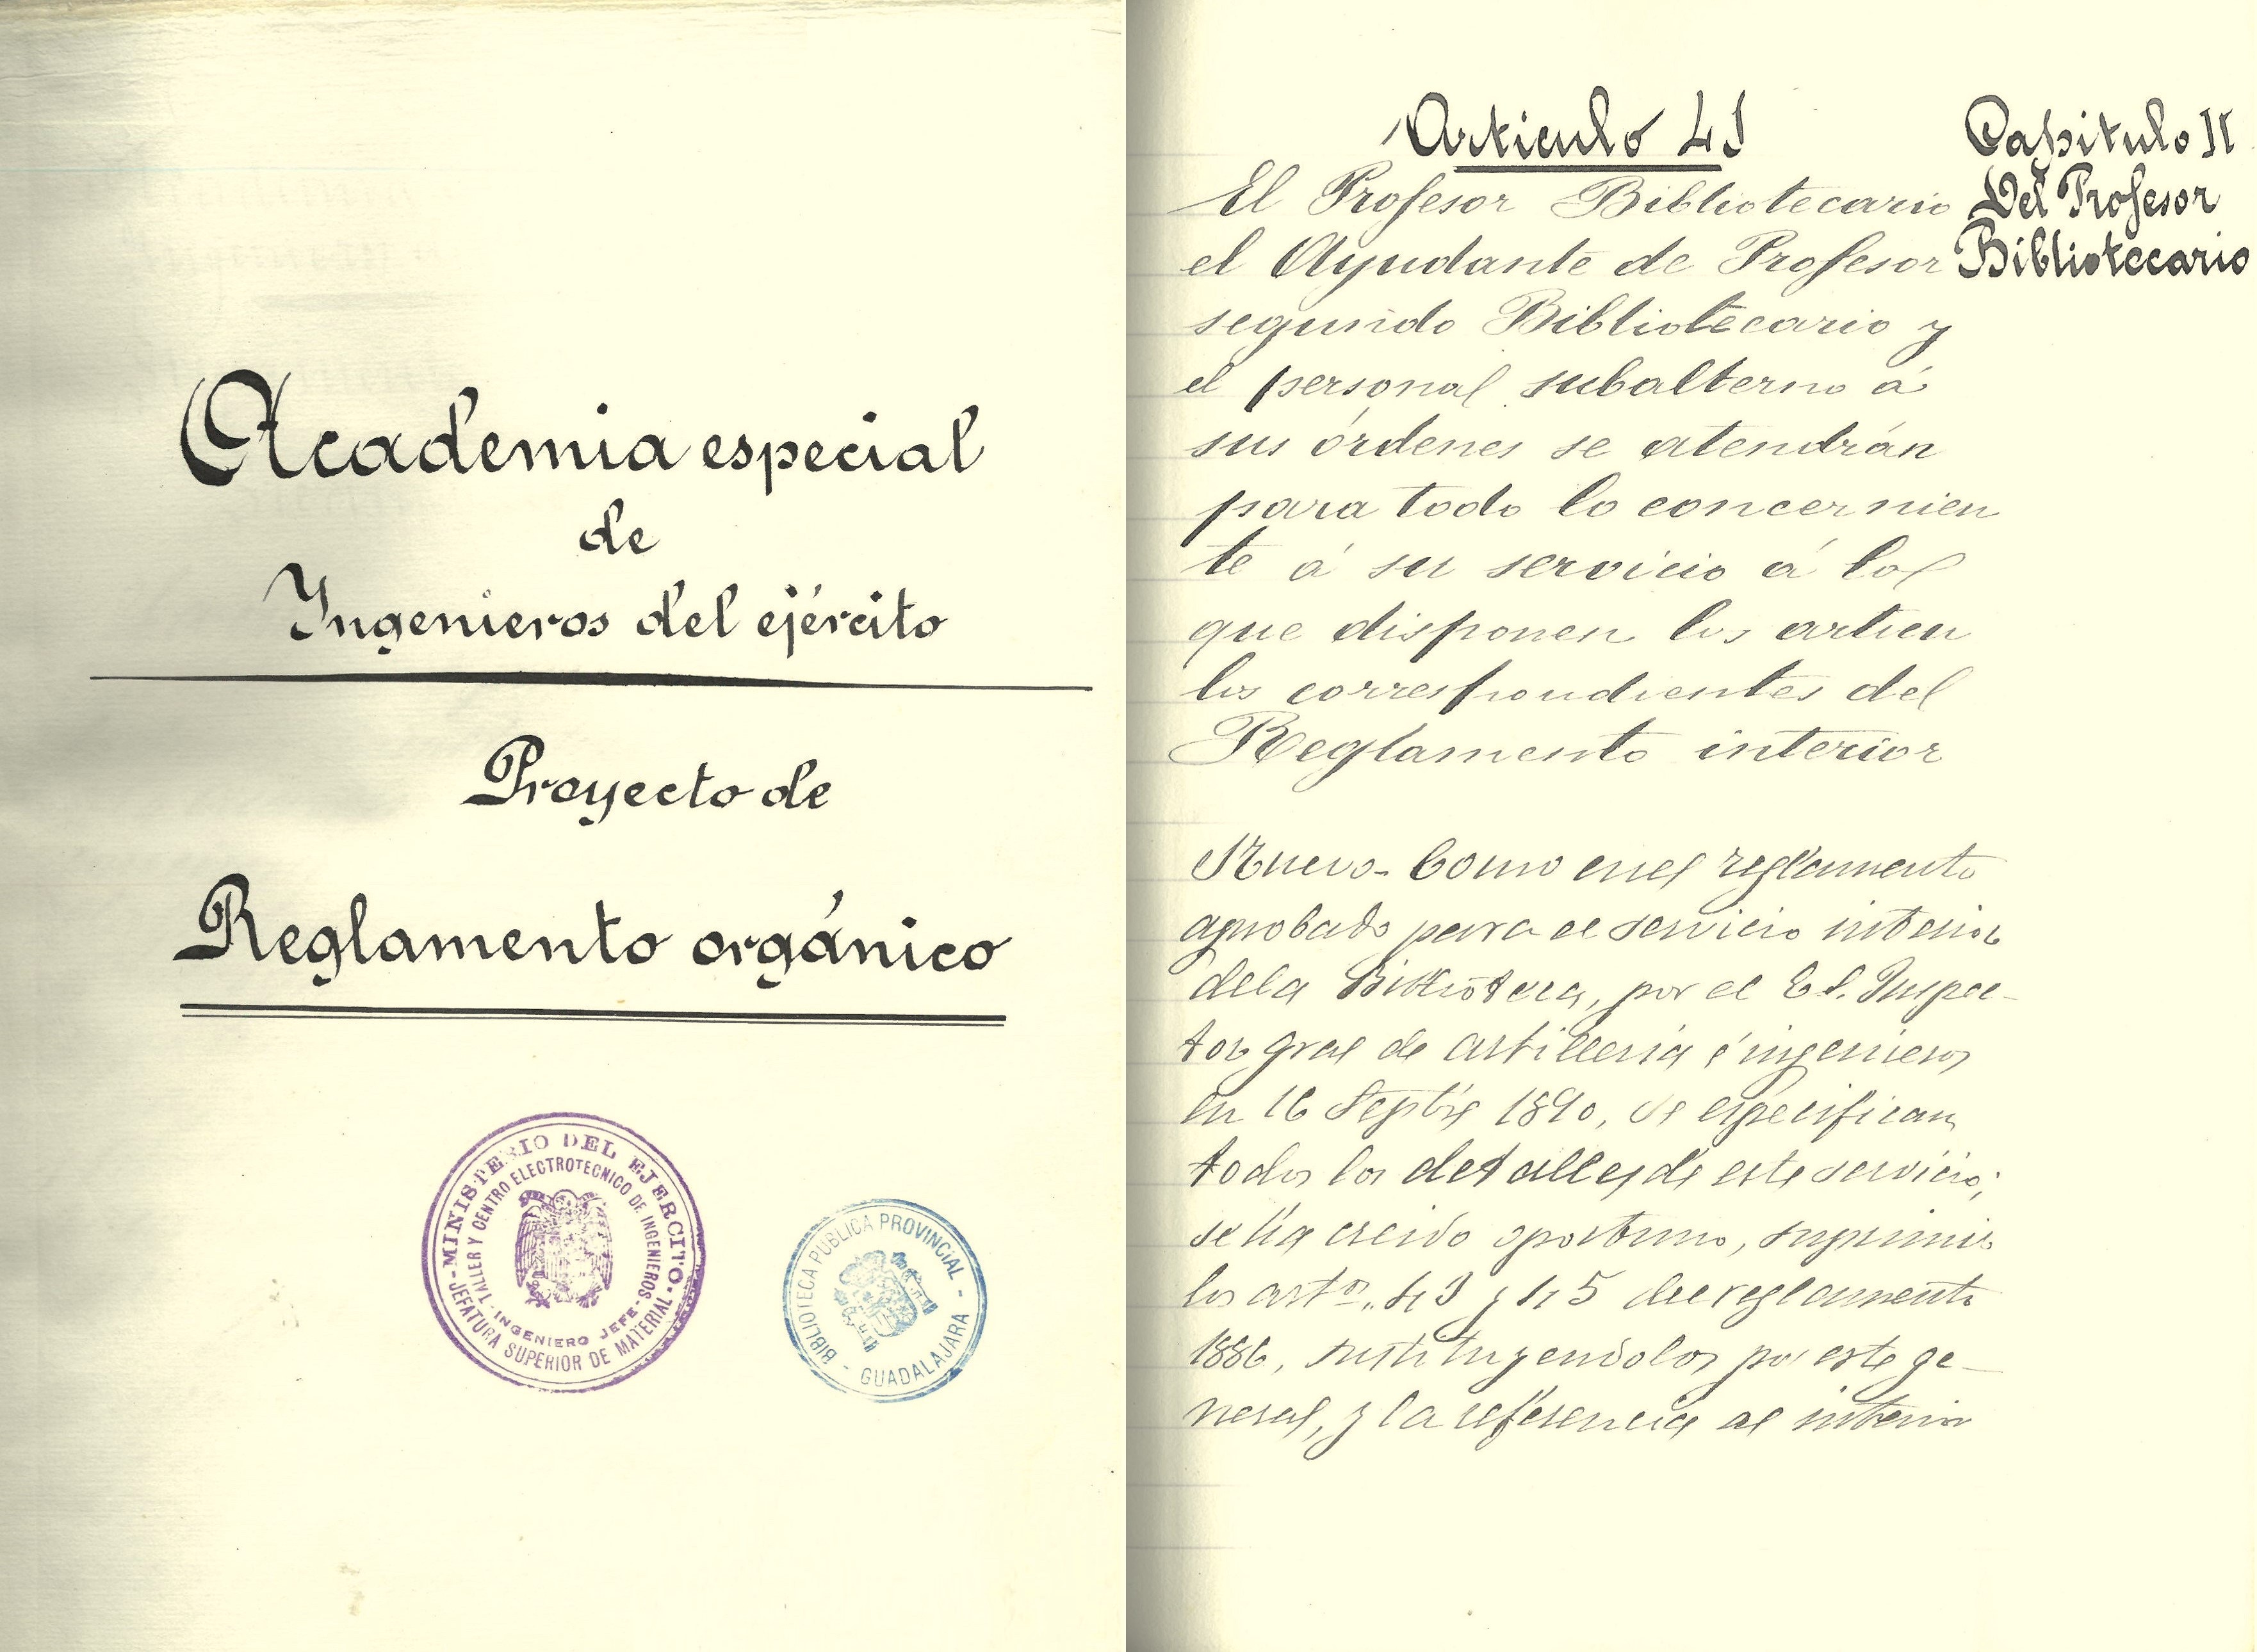 Academia especial
de
Ingenieros del ejército
Proyecto de
Reglamento orgánico
-MINISTERIO DEL EJERCITO-
JEFATURA SUPERIOR DE MATERIAL
TALLER Y CENTRO ELECTROTECNICO DE INGENIEROS-
INGENIERO JEFE-
BIBLIOTECA PUBLICA PROVINCIAL -
GUADALAJARA -
Articulo 41
Capitulo II
Del Profesor
Bibliotecario
El Profesor Bibliotecario
el Ayudante de Profesor
segundo Bibliotecario y
el personal subalterno á
sus órdenes se atendrán
para todo lo concernien
te á su servicio á los
que disponen los articu
los correspondientes del
Reglamento interior
Nuevo- Como en el reglamento
aprobado para el servicio interior
de la Biblioteca, por el E S. Inspec-
tor gral de artilleria é ingenieros
en 16 Septbre 1890, se especifican
todos los detalles de este servicio;
se ha creido oportuno, suprimir
los artos. 43 y 45 del reglamento
1886, sustituyendolos por este ge-
neral, y la referencia al interior